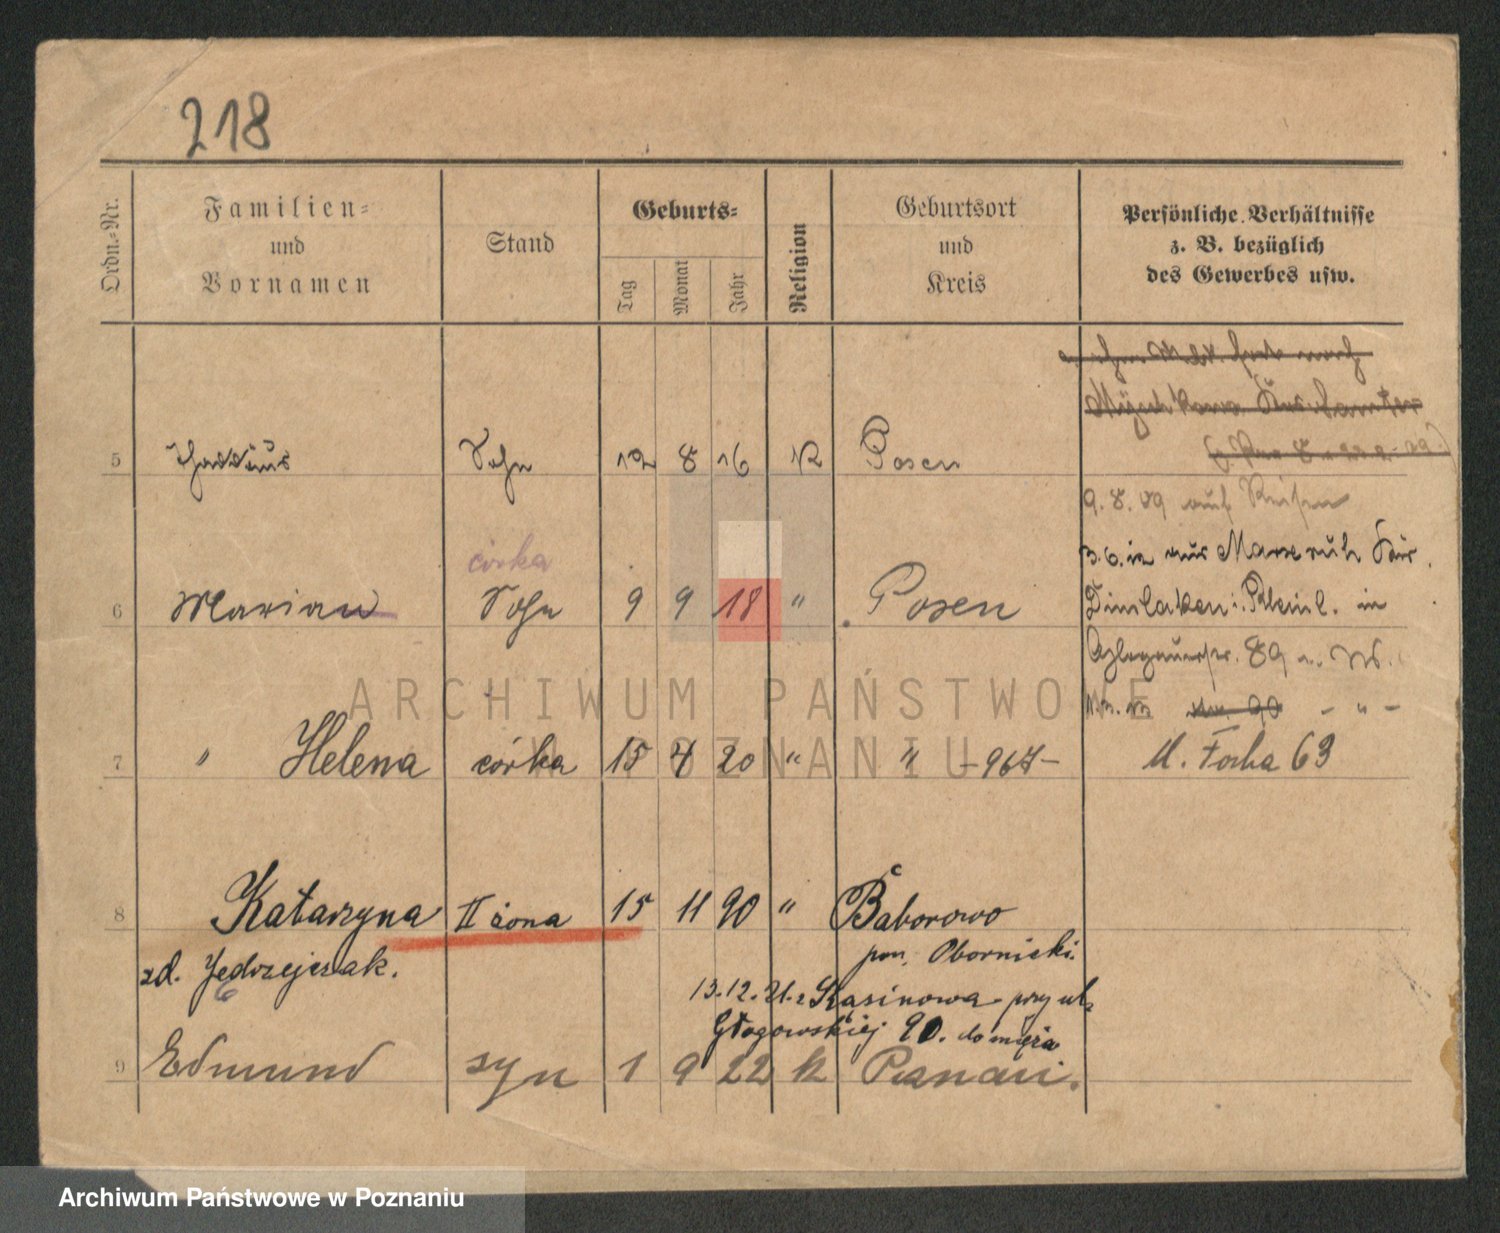 218
Ordn.=Nr.
Familien=
und
Vornamen
Stand
Geburts=
Tag
Monat
Jahr
Religion
Geburtsort
und
Kreis
Persönliche Verhältnisse
z. B. bezüglich
des Gewerbes usw.
5 Thaddäus Sohn 12 8 16 K Posen
9. 8. 09 auf Reisen
córka
6 Marian Sohn 9 9 18 " Posen
3. 6. 12 aus Marxruh Kr.
Dinslaken
in
89
ARCHIWUM PAŃSTWOWE
W POZNANIU
7 " Helena córka 15 4 20 " " -967- Ul. Focha 63
8 Katarzyna II żona 15 11 90 " Baborowo
zd. Jędrzejczak. pow. Obornicki.
13.12.21. z Kasinowa przy ul.
Głogowskiej 90. do męża
9 Edmund syn 1 9 22 k Poznań.
Archiwum Państwowe w Poznaniu